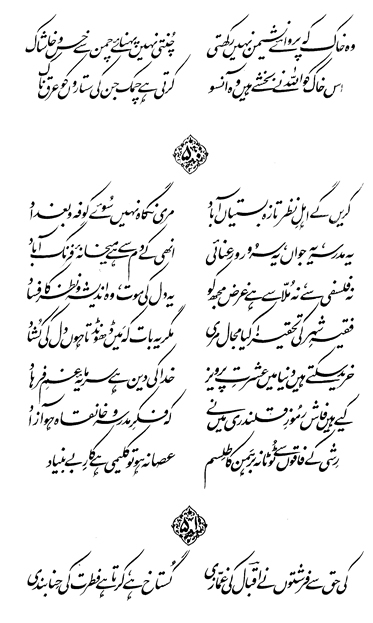 وہ خاک کہ پروائے نشیمن نہیں رکھتی چنتی نہیں پہنائے چمن سے خس و خاشاک
اس خاک کو اللہ نے بخشے ہیں وہ آنسو کرتی ہے چمک جن کی ستاروں کو عرق ناک
کریں گے اہلِ نظر تازہ بستیاں آباد مری نگاہ نہیں سوئے کوفہ و بغداد
یہ مدرسہ، یہ جواں، یہ سرور و رعنائی انھی کے دم سے ہے میخانۂ فرنگ آباد
نہ فلسفی سے، نہ مُلّا سے ہے غرض مجھ کو یہ دل کی موت، وہ اندیشہ و نظر کا فساد
فقیہِ شہر کی تحقیر! کیا مجال مری مگر یہ بات کہ میں ڈھونڈتا ہوں دل کی کشاد
خرید سکتے ہیں دنیا میں عشرتِ پرویز خدا کی دین ہے سرمایۂ غمِ فرہاد
کیے ہیں فاش رموزِ قلندری میں نے کہ فکرِ مدرسہ و خانقاہ ہو آزاد
رشی کے فاقوں سے ٹوٹا نہ برہمن کا طلسم عصا نہ ہو تو کلیمی ہے کارِ بے بنیاد
کی حق سے فرشتوں نے اقبال کی غمّازی گستاخ ہے، کرتا ہے فطرت کی حنابندی